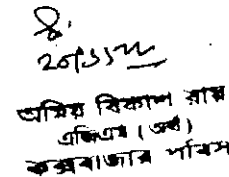 ২০/১১/
অমিয় বিকাশ রায়
এজিএম (অর্থ)
কক্সবাজার পবিস